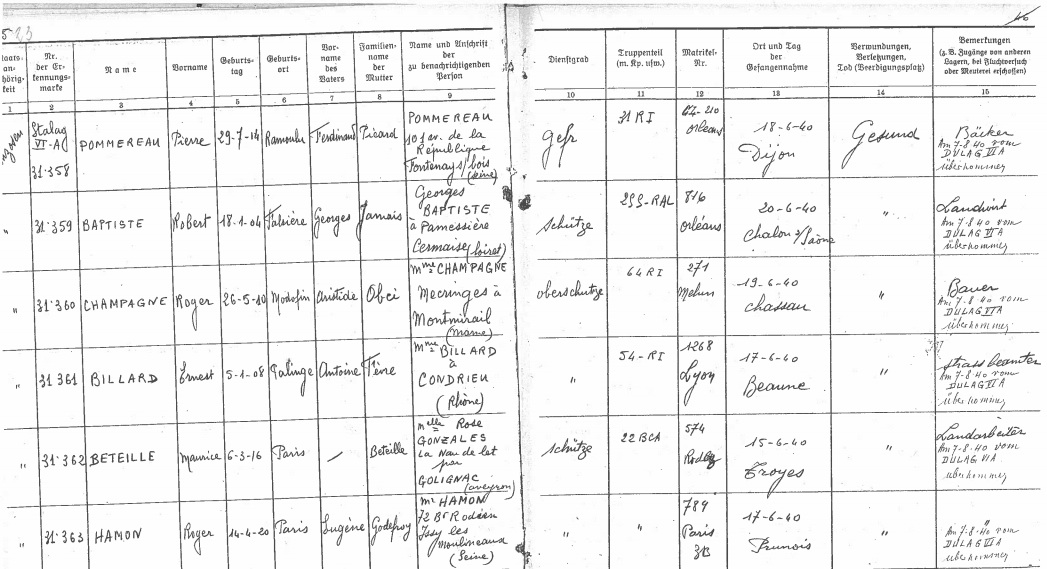 523
40
Staats-
an-
hörig-
keit
Nr.
der Er-
kennungs-
marke
Name
Vorname
Geburts-
tag
Geburts-
ort
Vor-
name
des
Vaters
Familien-
name
der
Mutter
Name und Anschrift
der
zu benachrichtigenden
Person
Dienstgrad
Truppenteil
(m. Kp. usw.)
Matrikel-
Nr.
Ort und Tag
der
Gefangennahme
Verwundungen,
Verletzungen,
Tod (Beerdigungsplatz)
Bemerkungen
(z. B. Zugänge von anderen
Lagern, bei Fluchtversuch
oder Meuterei erschossen)
1 2 3 4 5 6 7 8 9 10 11 12 13 14 15
Stalag
VI-A
31.358
POMMEREAU
Pierre
29-7-14
Ferdinand
Picard
POMMEREAU
101 av. de la
République
Fontenays/bois
(Seine)
gefr
31 RI
orléans
18-6-40
Dijon
Gesund
Bäcker
Am 7-8-40 vom
DULAG VI A
überkommen
"
31.359
BAPTISTE
Robert
18-1-04
Georges
Jamais
Georges
BAPTISTE
à Pamessière
Cermaise (loiret)
schütze
816
orléans
20-6-40
Chalon s/Saône
"
Landwirt
Am 7-8-40 vom
DULAG VI A
überkommen
"
31.360
CHAMPAGNE
Roger
26-5-10
Aristide
Mme CHAMPAGNE
Mecringes à
Montmirail
(marne)
oberschütze
64 RI
271
Melun
19-6-40
Chassau
"
Bauer
Am 7-8-40 vom
DULAG VI A
überkommen
"
31.361
BILLARD
Ernest
5-1-08
Palinge
Antoine
Mme BILLARD
à
CONDRIEU
(Rhône)
"
54-RI
1268
Lyon
17-6-40
Beaune
"
Strassbeamter
Am 7-8-40 vom
DULAG VI A
überkommen
"
31.362
BETEILLE
Maurice
6-3-16
Paris
/
Beteille
Melle Rose
GONZALES
La Nau de let
par
GOLIGNAC
(aveyron)
schütze
22 BCA
574
Rodez
15-6-40
Troyes
"
Landarbeiter
Am 7-8-40 vom
DULAG VI A
überkommen
"
31.363
HAMON
Roger
14-4-20
Paris
Eugène
Godefroy
Mr HAMON
72 Bd Rodin
Issy les
Moulineaux
(Seine)
"
"
789
Paris
3B
17-6-40
Prunois
"
"
Am 7-8-40 vom
DULAG VI A
überkommen